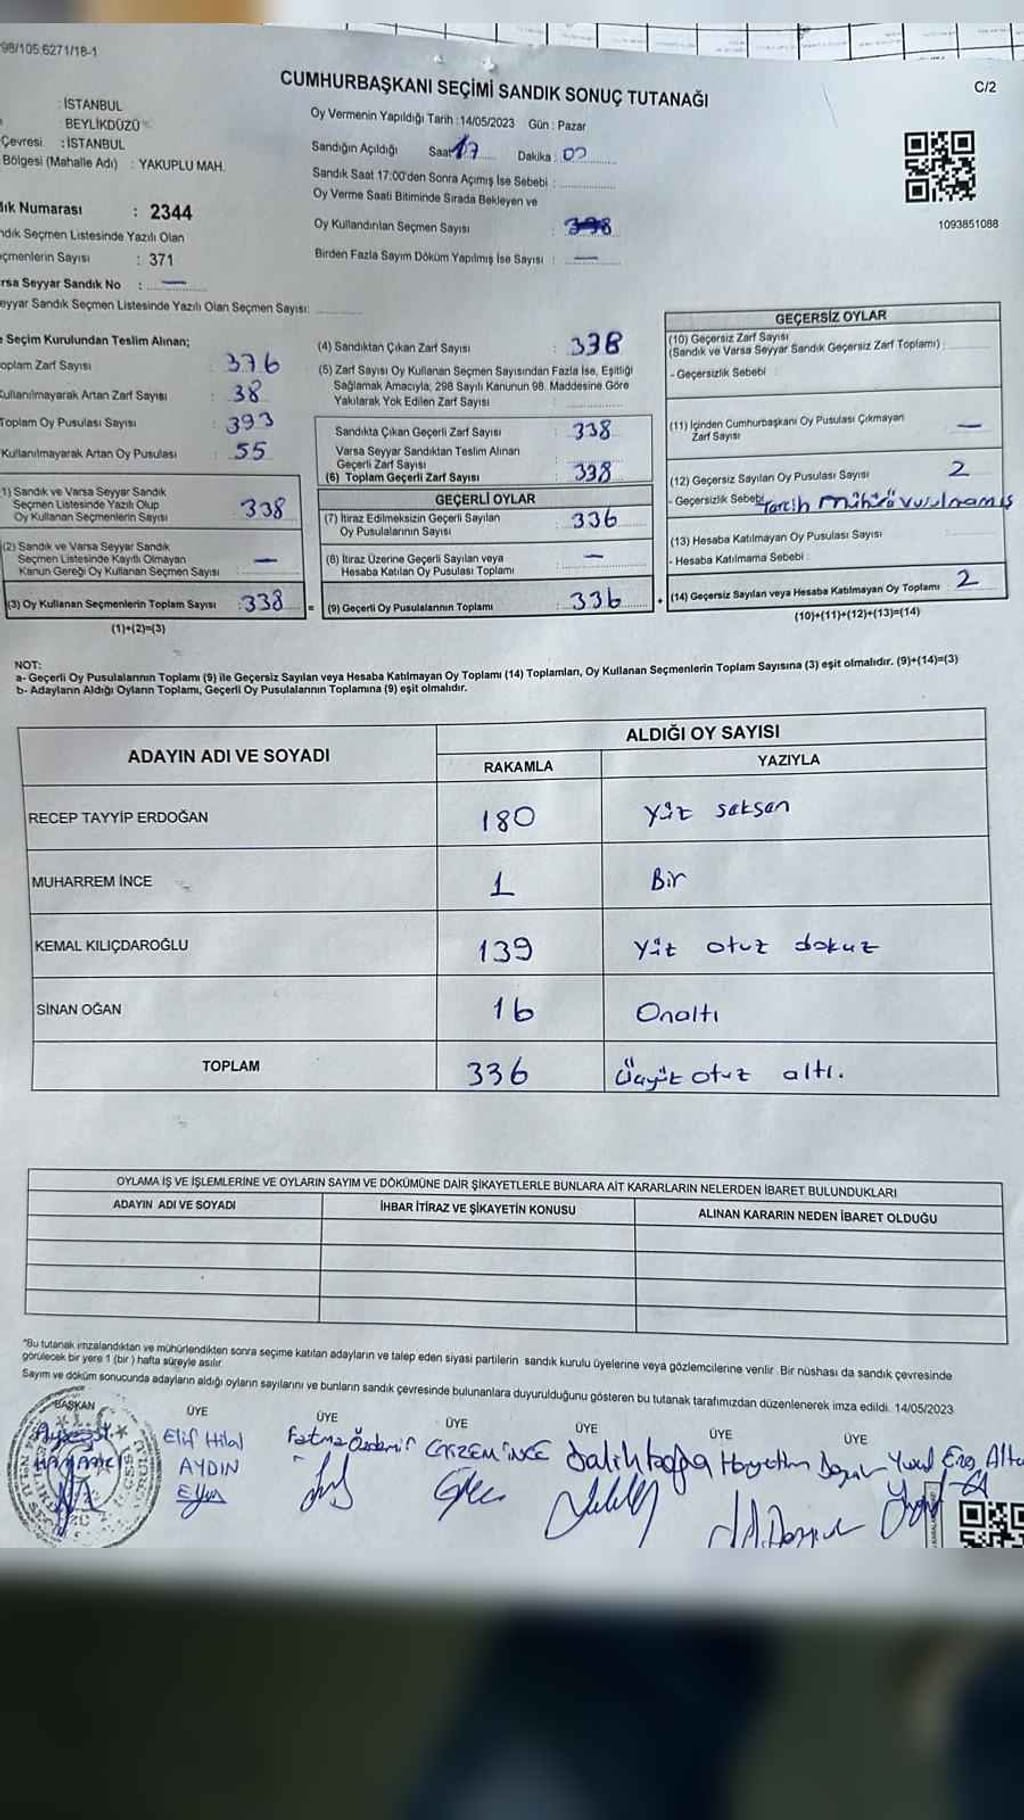 98/105.6271/18-1
CUMHURBAŞKANI SEÇİMİ SANDIK SONUÇ TUTANAĞI
C/2
: İSTANBUL
BEYLİKDÜZÜ
Çevresi : İSTANBUL
Bölgesi (Mahalle Adı) : YAKUPLU MAH.
Oy Vermenin Yapıldığı Tarih :14/05/2023 Gün : Pazar
Sandığın Açıldığı Saat 17 Dakika : 00
Sandık Saat 17:00'den Sonra Açımış İse Sebebi :
Oy Verme Saati Bitiminde Sırada Bekleyen ve
Oy Kullandırılan Seçmen Sayısı :
Birden Fazla Sayım Döküm Yapılmış İse Sayısı : —
1093851088
ık Numarası : 2344
ndık Seçmen Listesinde Yazılı Olan
çmenlerin Sayısı : 371
rsa Seyyar Sandık No : —
eyyar Sandık Seçmen Listesinde Yazılı Olan Seçmen Sayısı:
Seçim Kurulundan Teslim Alınan;
oplam Zarf Sayısı : 376
Kullanılmayarak Artan Zarf Sayısı : 38
Toplam Oy Pusulası Sayısı : 393
Kullanılmayarak Artan Oy Pusulası : 55
1) Sandık ve Varsa Seyyar Sandık
Seçmen Listesinde Yazılı Olup
Oy Kullanan Seçmenlerin Sayısı : 338
(2) Sandık ve Varsa Seyyar Sandık
Seçmen Listesinde Kayıtlı Olmayan
Kanun Gereği Oy Kullanan Seçmen Sayısı —
(3) Oy Kullanan Seçmenlerin Toplam Sayısı : 338
(1)+(2)=(3)
(4) Sandıktan Çıkan Zarf Sayısı : 338
(5) Zarf Sayısı Oy Kullanan Seçmen Sayısından Fazla İse, Eşitliği
Sağlamak Amacıyla, 298 Sayılı Kanunun 98. Maddesine Göre
Yakılarak Yok Edilen Zarf Sayısı
Sandıkta Çıkan Geçerli Zarf Sayısı : 338
Varsa Seyyar Sandıktan Teslim Alınan
Geçerli Zarf Sayısı
(6) Toplam Geçerli Zarf Sayısı : 338
GEÇERLİ OYLAR
(7) İtiraz Edilmeksizin Geçerli Sayılan
Oy Pusulalarının Sayısı : 336
(8) İtiraz Üzerine Geçerli Sayılan veya
Hesaba Katılan Oy Pusulası Toplamı —
= (9) Geçerli Oy Pusulalarının Toplamı : 336
GEÇERSİZ OYLAR
(10) Geçersiz Zarf Sayısı
(Sandık ve Varsa Seyyar Sandık Geçersiz Zarf Toplamı) :
- Geçersizlik Sebebi :
(11) İçinden Cumhurbaşkanı Oy Pusulası Çıkmayan
Zarf Sayısı —
(12) Geçersiz Sayılan Oy Pusulası Sayısı 2
- Geçersizlik Sebebi Tercih mührü vurulmamış
(13) Hesaba Katılmayan Oy Pusulası Sayısı
- Hesaba Katılmama Sebebi :
+ (14) Geçersiz Sayılan veya Hesaba Katılmayan Oy Toplamı 2
(10)+(11)+(12)+(13)=(14)
NOT:
a- Geçerli Oy Pusulalarının Toplamı (9) ile Geçersiz Sayılan veya Hesaba Katılmayan Oy Toplamı (14) Toplamları, Oy Kullanan Seçmenlerin Toplam Sayısına (3) eşit olmalıdır. (9)+(14)=(3)
b- Adayların Aldığı Oyların Toplamı, Geçerli Oy Pusulalarının Toplamına (9) eşit olmalıdır.
ADAYIN ADI VE SOYADI
ALDIĞI OY SAYISI
RAKAMLA YAZIYLA
RECEP TAYYİP ERDOĞAN 180 Yüz seksen
MUHARREM İNCE 1 Bir
KEMAL KILIÇDAROĞLU 139 Yüz otuz dokuz
SİNAN OĞAN 16 Onaltı
TOPLAM 336 Üçyüz otuz altı.
OYLAMA İŞ VE İŞLEMLERİNE VE OYLARIN SAYIM VE DÖKÜMÜNE DAİR ŞİKAYETLERLE BUNLARA AİT KARARLARIN NELERDEN İBARET BULUNDUKLARI
ADAYIN ADI VE SOYADI İHBAR İTİRAZ VE ŞİKAYETİN KONUSU ALINAN KARARIN NEDEN İBARET OLDUĞU
"Bu tutanak imzalandıktan ve mühürlendikten sonra seçime katılan adayların ve talep eden siyasi partilerin sandık kurulu üyelerine veya gözlemcilerine verilir. Bir nüshası da sandık çevresinde
görülecek bir yere 1 (bir ) hafta süreyle asılır.
Sayım ve döküm sonucunda adayların aldığı oyların sayılarını ve bunların sandık çevresinde bulunanlara duyurulduğunu gösteren bu tutanak tarafımızdan düzenlenerek imza edildi. 14/05/2023
BAŞKAN ÜYE ÜYE ÜYE ÜYE ÜYE ÜYE
Elif Hilal AYDIN
Fatma Özdemir
GİZEM İNCE